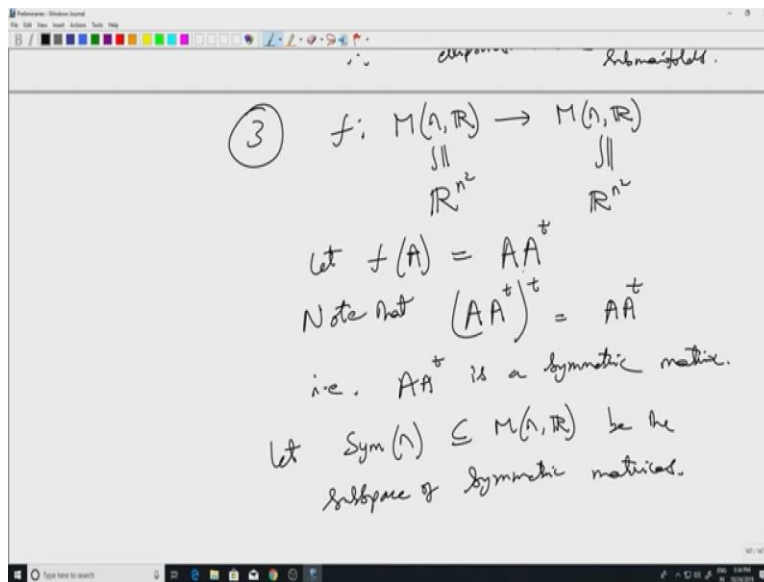 Preliminaries - Windows Journal
File Edit View Insert Actions Tools Help
∴ Submanifolds.
③ f: M(n, ℝ) → M(n, ℝ)
ℝ^{n²} ℝ^{n²}
Let f(A) = AA^t
Note that (AA^t)^t = AA^t
i.e. AA^t is a symmetric matrix.
Let Sym(n) ⊆ M(n, ℝ) be the
subspace of symmetric matrices.
147/147
Type here to search
ENG
IN